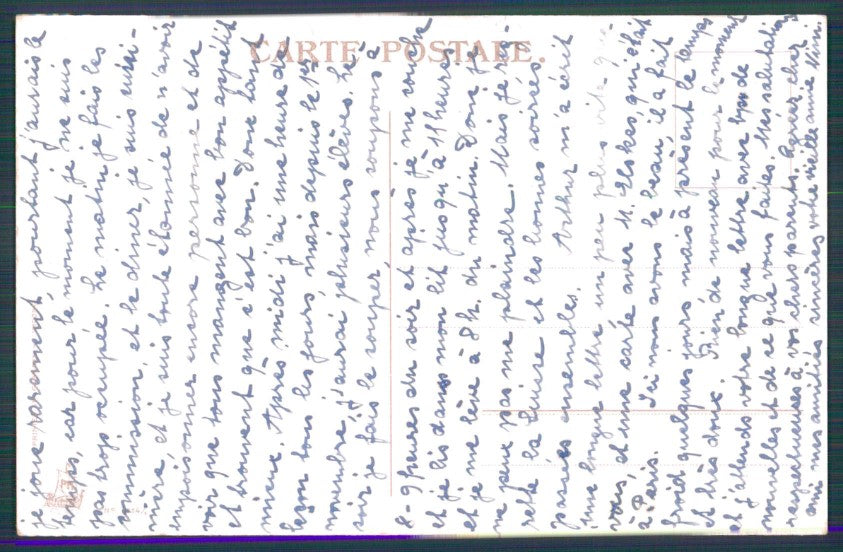 CARTE POSTALE.
je joue rarement, pourtant j'aurais le
temps, car pour le moment je ne suis
pas trop occupée. Le matin je fais les
commission, et le dîner, je suis cuisi-
nière, et je suis toute étonnée de n'avoir
empoisonner encore personne et de
voir que tous mangent avec bon appétit
et trouvent que c'est bon. Donc tant
mieux. Après midi j'ai une heure de
leçon tous les jours, mais depuis le 1er
novembre j'aurai plusieurs élèves. Le
soir je fais le souper, nous soupons à
8-9 heures du soir et après je me couche
et je lis dans mon lit jusqu'à 11 heures
et je me lève à 8 h. du matin. Donc je
ne peux pas me plaindre. Mais je re-
grette la Suisse et les bonnes soirées
passées ensembles. Arthur m'a écrit
une longue lettre un peu plus vite que
vous, et une carte avec M. qui était
à Paris. Ici nous avons le beau, il a fait
froid quelques jours mais à présent le temps
est très doux. Rien de nouveau pour le moment
et j'attends votre longue lettre avec de
nouvelles et de ce que vous faites. Mes salutations
respectueuses à vos chers parents. Agréez cher
ami mes amitiés sincères votre vieille amie